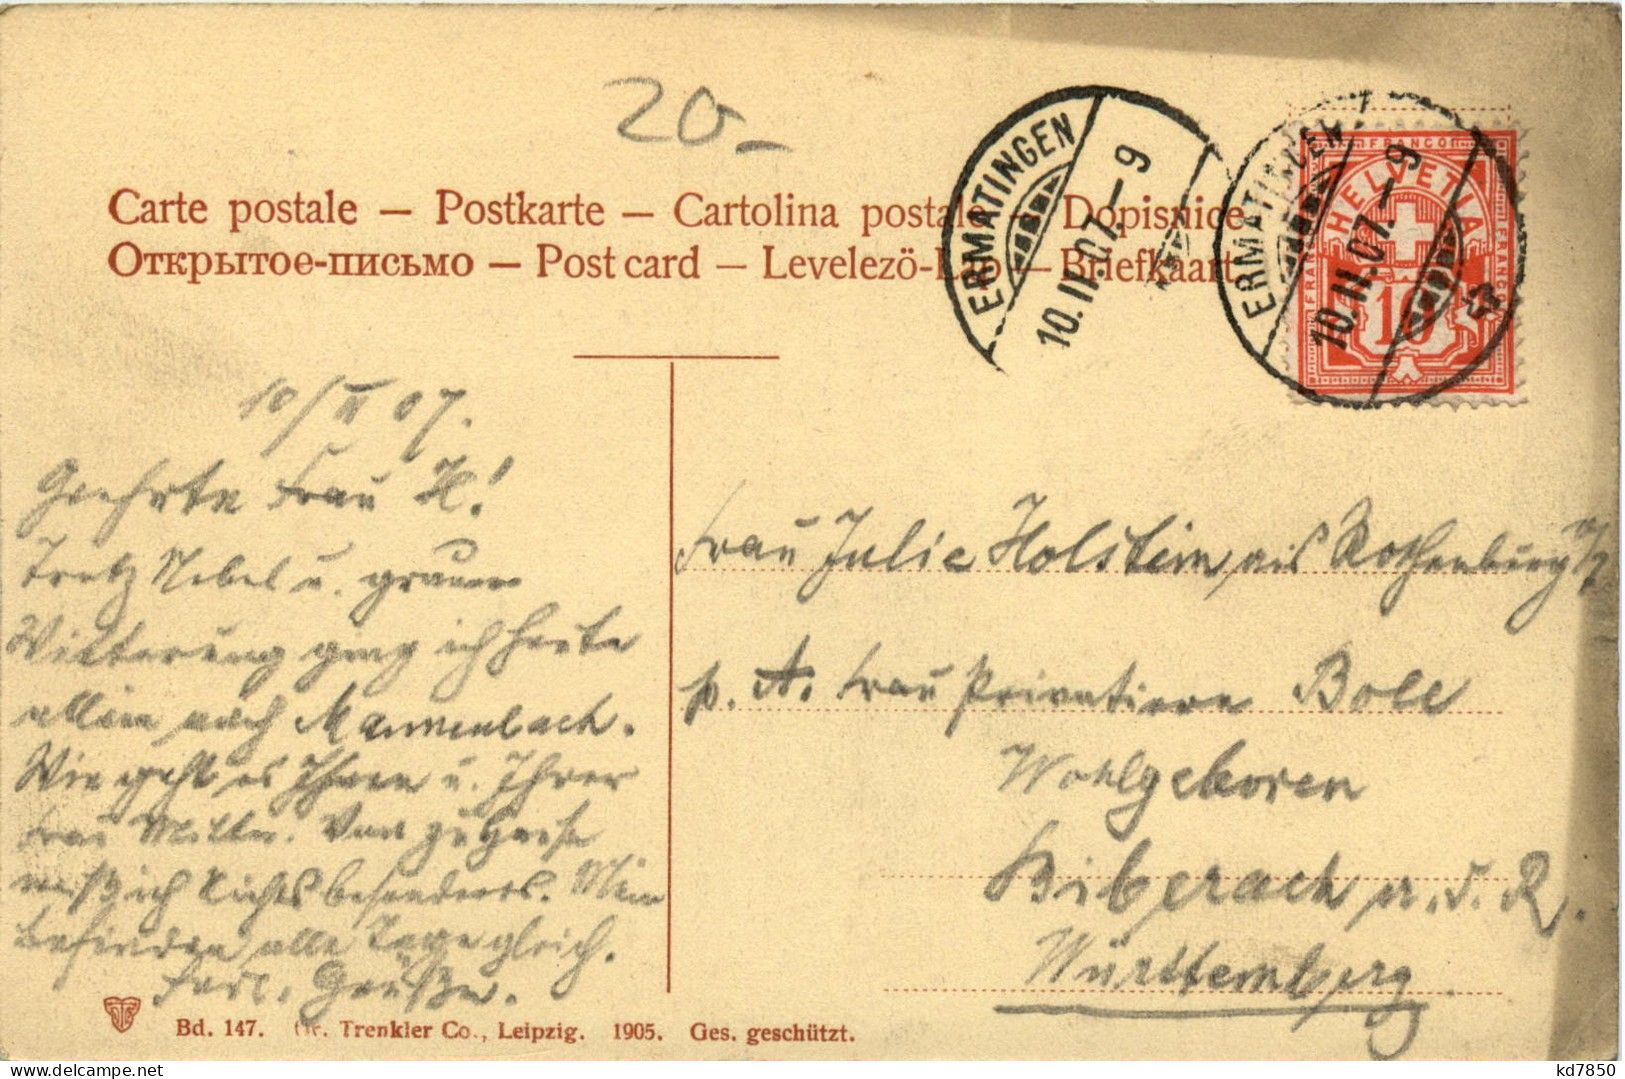 20.-
Carte postale – Postkarte – Cartolina postale – Dopisnice
Открытое-письмо – Post card – Levelezö-Lap – Briefkaart
ERMATINGEN
10.II.07.–9
ERMATINGEN
10.II.07.–9
FRANCO
HELVETIA
FRANCO
FRANCO
10
10/II 07.
Geehrte Frau H!
Trotz Nebel u. grauer
Witterung ging ich heute
allein nach Mannenbach.
Wie geht es Ihnen u. Ihrer
Frau Mutter. Von zu Hause
weiß ich Nichts besonderes. Mein
Befinden alle Tage gleich.
Herzl. Grüße.
Frau Julie Holstein aus Rothenburg a/
p. A. Frau Privatiere Bole
Wohlgeboren
Biberach a. d. R.
Württemberg
Bd. 147. Dr. Trenkler Co., Leipzig. 1905. Ges. geschützt.
kd7850